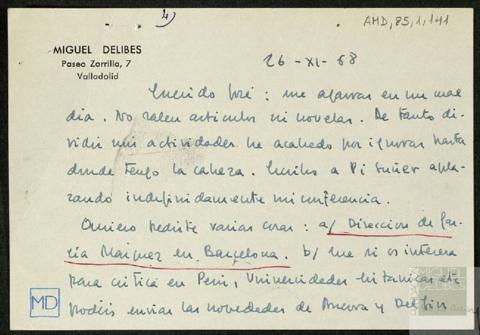 4)
AMD,85,1,141
MIGUEL DELIBES
Paseo Zorrilla, 7
Valladolid
26-XI-68
Querido José: me agarras en un mal
día. No salen artículos ni novelas. De tanto di-
vidir mis actividades he acabado por ignorar hasta
donde tengo la cabeza. Escribo a Pi Suñer apla-
zando indefinidamente mi conferencia.
Quiero pedirte varias cosas: a/ Direccion de Gar-
cia Marquez en Barcelona. b/ me si os interesa
para critica en Perú, Universidades britanicas etc
podeis enviar las novedades de Ancora y Delfin
MD
MIGUEL
DELIBES